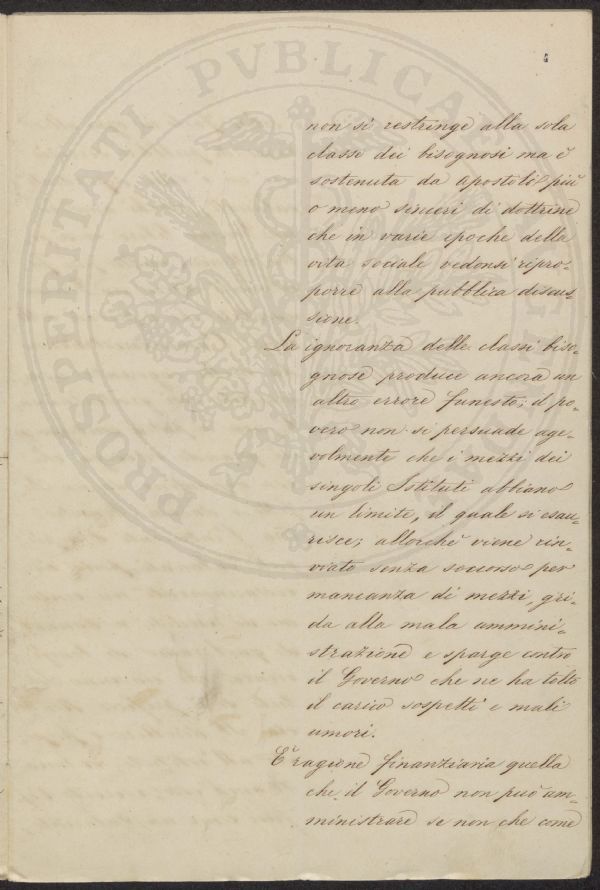 PROSPERITATI PVBLICAE
non si restringe alla sola
classe dei bisognosi ma è
sostenuta da apostoli più
o meno sinceri di dottrine
che in varie epoche della
vita sociale vedonsi ripro-
porre alla pubblica discus-
sione.
La ignoranza delle classi biso-
gnose produce ancora un
altro errore funesto; il po-
vero non si persuade age-
volmente che i mezzi dei
singoli Istituti abbiano
un limite, il quale si esau-
risce; allorchè viene rin-
viato senza soccorso per
mancanza di mezzi, gri-
da alla mala ammini-
strazione e sparge contro
il Governo che ne ha tolto
il carico sospetti e mali
umori.
È ragione finanziaria quella
che il Governo non può am-
ministrare se non che come